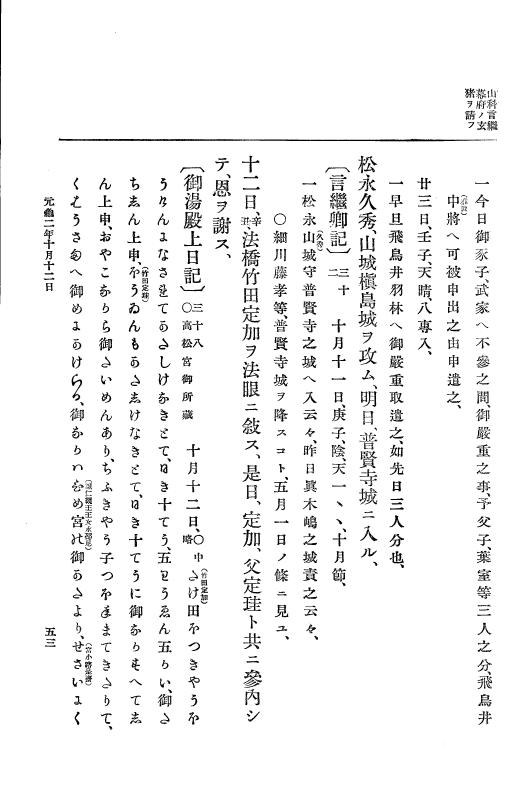 山科言繼
幕府ノ玄
猪ヲ請フ
一今日御亥子、武家ヘ不參之間、御嚴重之事、予父子、葉室等三人之分、飛鳥井
中將(雅敦)へ可被申出之由申遣之、
廿三日、壬子、天晴、八專入、
一早旦飛鳥井羽林ヘ御嚴重取遣之、如先日三人分也、
松永久秀、山城槇島城ヲ攻ム、明日、普賢寺城ニ入ル、
〔言繼卿記〕三十二 十月十一日、庚子、陰、天一丶、十月節、
一松永山城守(久秀)普賢寺之城へ入云々、昨日眞木嶋之城責之云々、
○細川藤孝等、普賢寺城ヲ降スコト、五月一日ノ條ニ見ユ、
十二日、辛丑、法橋竹田定加ヲ法眼ニ敍ス、是日、定加、父定珪ト共ニ參內シ
テ、恩ヲ謝ス、
〔御湯殿上日記〕三十八 ○高松宮御所藏 十月十二日、○中略 たけ田(竹田定加)をつきやうを
うけんになさせてかたしけなきとて、ひき十てう、五色ゑん五らい、御た
ちゑん上申、をゐん(竹田定珪)もかたしけなきとて、ひき十てうに御なりそへてゑ
ん上申、おやこなから御たいめんあり、ちふきやう子つをまてきたりて、
くそうさた へ御めにかける、御なりハひめ宮(誠仁親王王女永邵尼)の御かたより、せさいよ(宮小路某齋)く
元龜二年十月十二日
五三